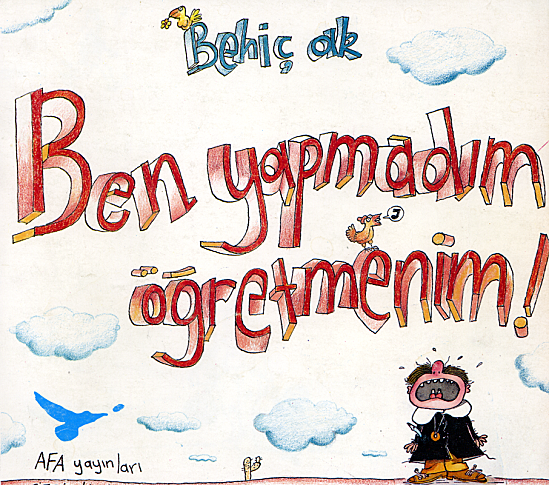 Behiç ak
Ben yapmadım
öğretmenim!
AFA yayınları